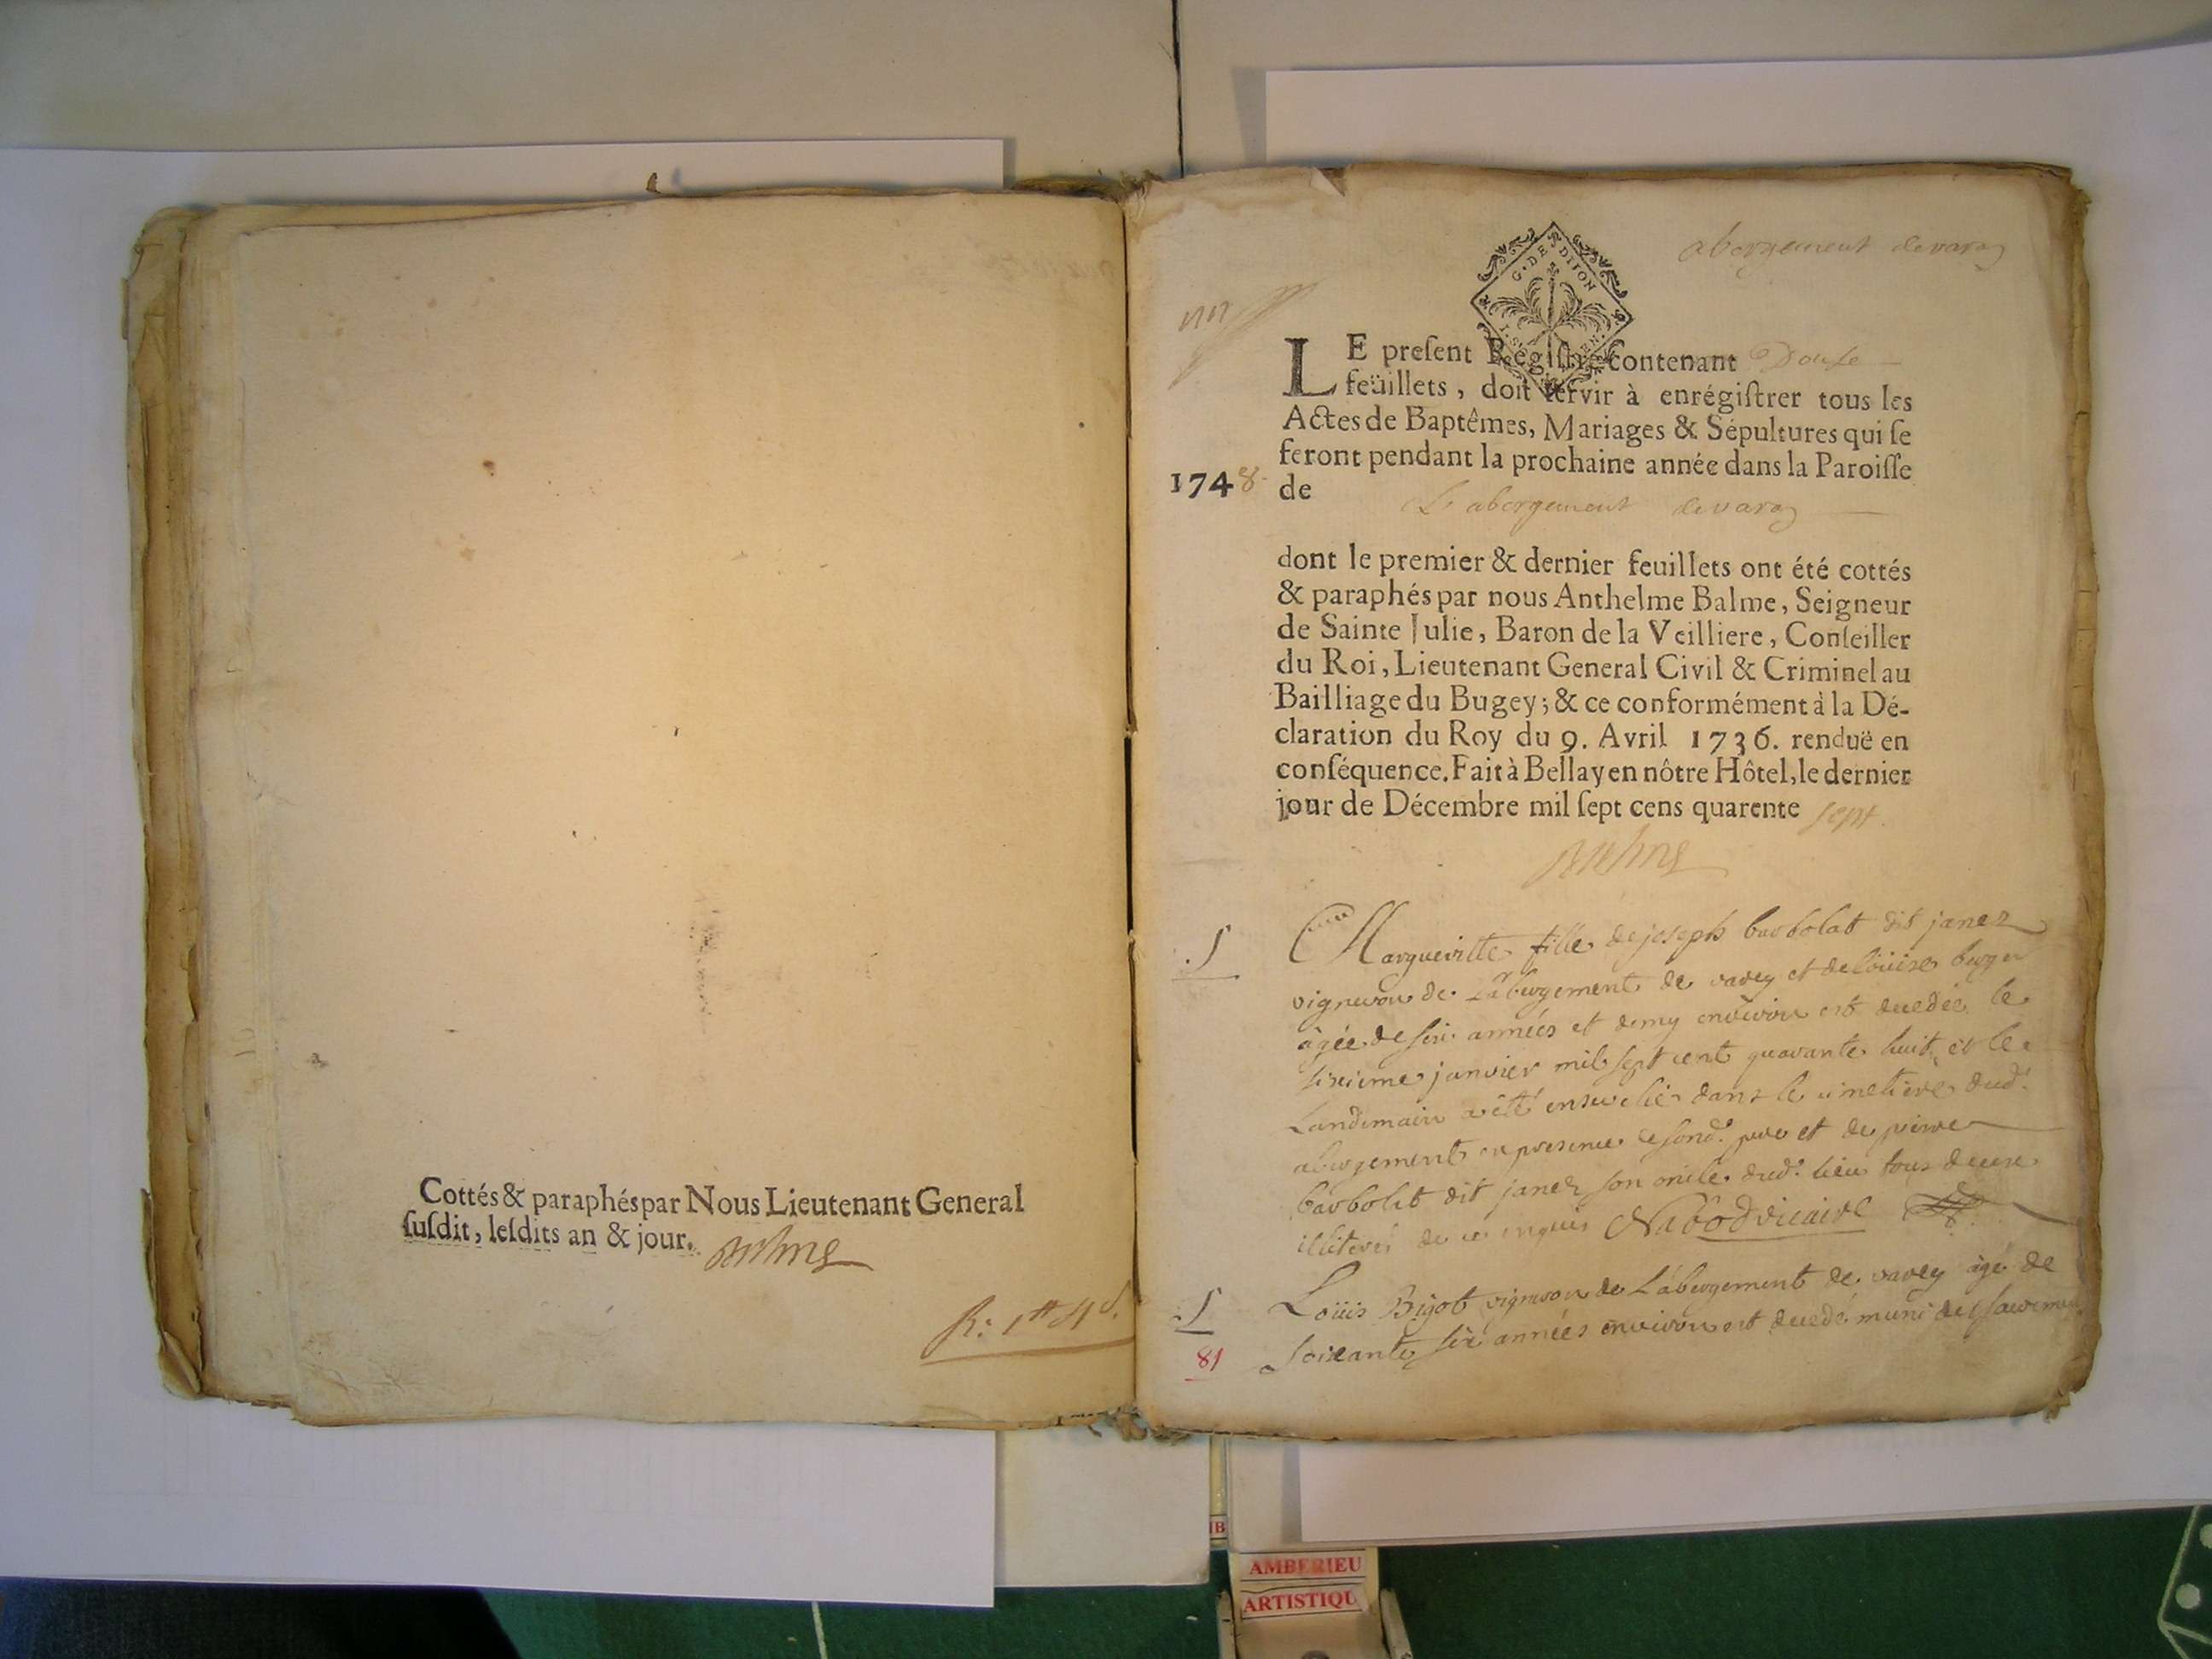 Cottés & paraphés par Nous Lieutenant General
ſuſdit, leſdits an & jour.
abergement devarey
G. DE DIJON
LE preſent Régiſtre contenant Douſe
feüillets, doit ſervir à enrégiſtrer tous les
Actes de Baptêmes, Mariages & Sépultures qui ſe
feront pendant la prochaine année dans la Paroiſſe
1748. de
L'abergement devarey
dont le premier & dernier feuillets ont été cottés
& paraphés par nous Anthelme Balme, Seigneur
de Sainte Julie, Baron de la Veilliere, Conſeiller
du Roi, Lieutenant General Civil & Criminel au
Bailliage du Bugey; & ce conformément à la Dé-
claration du Roy du 9. Avril 1736. renduë en
conſéquence. Fait à Bellay en nôtre Hôtel, le dernier
jour de Décembre mil ſept cens quarente sept.
S
Margueritte fille de joseph barbolat dit janez
vigneron de L'abergement de varey et de Loüise berger
âgée de six années et demy environ est decedée le
sixieme janvier mil sept cent quarante huit, et le
Landemain a été ensevelie dans le cimetiere dud.
abergement en presence de sond. pere et de pierre
barbolat dit janez son oncle dud. lieu tous deux
illiterés de ce enquis Nabod vicaire
S
Loüis Bigot vigneron de L'abergement de varey âgé de
soixante six années environ est decedé muni des sacremens
81
AMBERIEU
ARTISTIQU